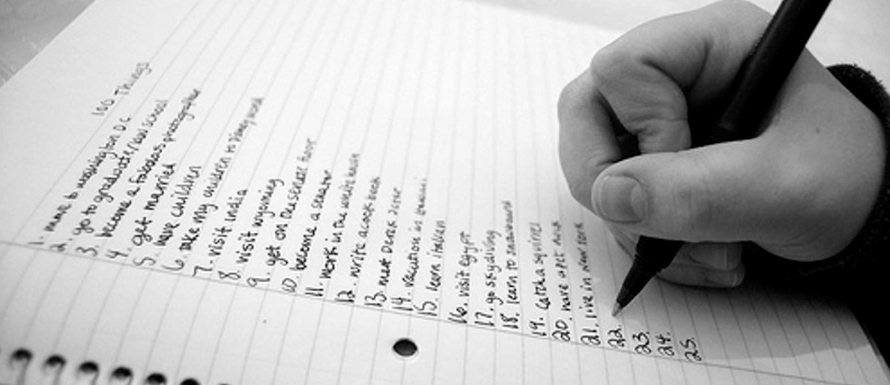 100 Things
1. move to washington D.C.
2. go to graduate/law school
3. become a fabulous photographer
4. get married
5. have children
6. take my children to disney world
7. visit India
8. visit wyoming
9. get on the senate floor
10. become a senator
11. work in the white house
12. write a cook book
13. meet Derek Jeter
14. vacation in
15. learn italian
16. visit Egypt
17. go skydiving
18. learn to snowboard
19. catch a squirrel
20. have a pet
21. live in new york
22.
23.
24.
25.